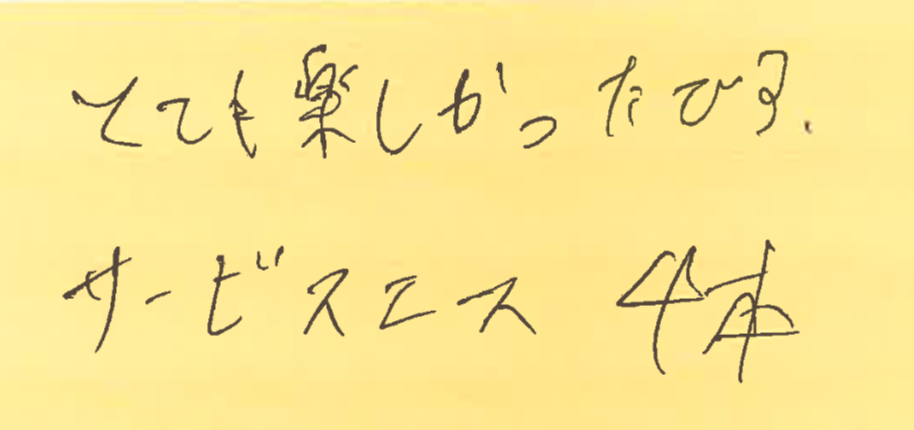 とても楽しかったです.
サービスエース 4本